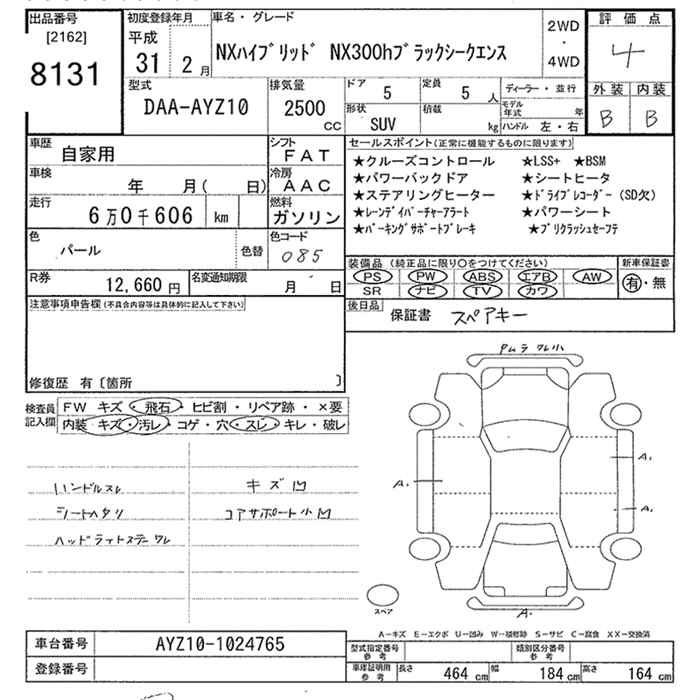 出品番号
[2162]
8131
初度登録年月
平成
31 2月
車名・グレード
NXハイブリッド NX300hブラックシークエンス
2WD
・
4WD
評価点
4
外装 内装
B B
型式
DAA-AYZ10
排気量
2500
CC
ドア
5
定員
5 人
形状
SUV
積載
kg
ディーラー・並行
モデル年式 年
ハンドル 左・右
車歴
自家用
シフト
FAT
車検
年 月( 日)
冷房
AAC
走行
6万0千606 km
燃料
ガソリン
色
パール
色替
色コード
085
R券
12,660 円
名変通知期限
月 日
セールスポイント(正常に機能するものに限ります)
★クルーズコントロール ★LSS+ ★BSM
★パワーバックドア ★シートヒータ
★ステアリングヒーター ★ドライブレコーダー (SD欠)
★レーンデイパーチャーアラート ★パワーシート
★パーキングサポートブレーキ ★プリクラッシュセーフテ
装備品(純正品に限り○をつけてください)
PS PW ABS エアB AW
SR ナビ TV カワ
新車保証書
有・無
後日品
保証書 スペアキー
注意事項申告欄(不具合内容等は具体的に記入して下さい)
修復歴 有〔箇所 〕
検査員記入欄
FW キズ・飛石・ヒビ割・リペア跡・×要
内装 キズ・汚レ・コゲ・穴・スレ・キレ・破レ
ハンドルスレ
シートヘタリ
ヘッドライトステーワレ
キズ凹
コアサポート小凹
タムラワレ小
A.
A.
A.
A.
スペア
A-キズ E-エクボ U-凹み W-補修跡 S-サビ C-腐食 XX-交換済
車台番号
AYZ10-1024765
登録番号
型式指定番号
参考
類別区分番号
参考
車庫証明用
参考
長さ 464 cm 幅 184 cm 高さ 164 cm